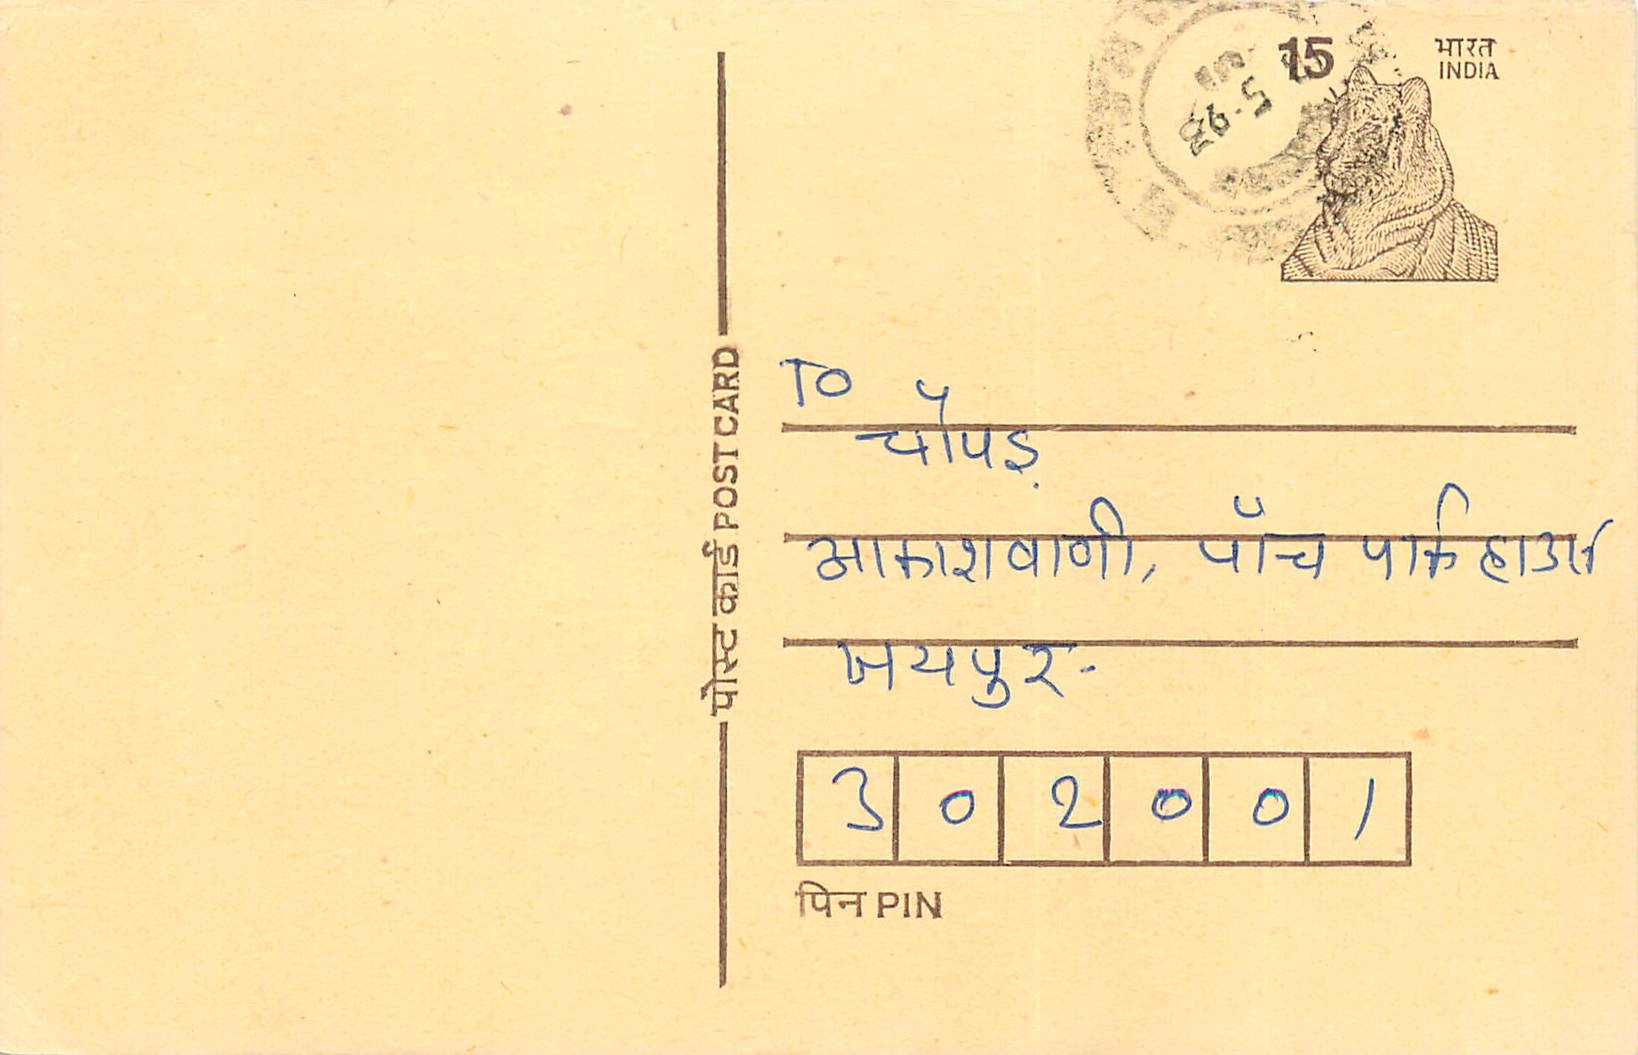 15 भारत
INDIA
5-93
पोस्ट कार्ड POST CARD
TO
चौपड़
आकाशवाणी, पाँच पार्क हाउस
जयपुर-
302001
पिन PIN